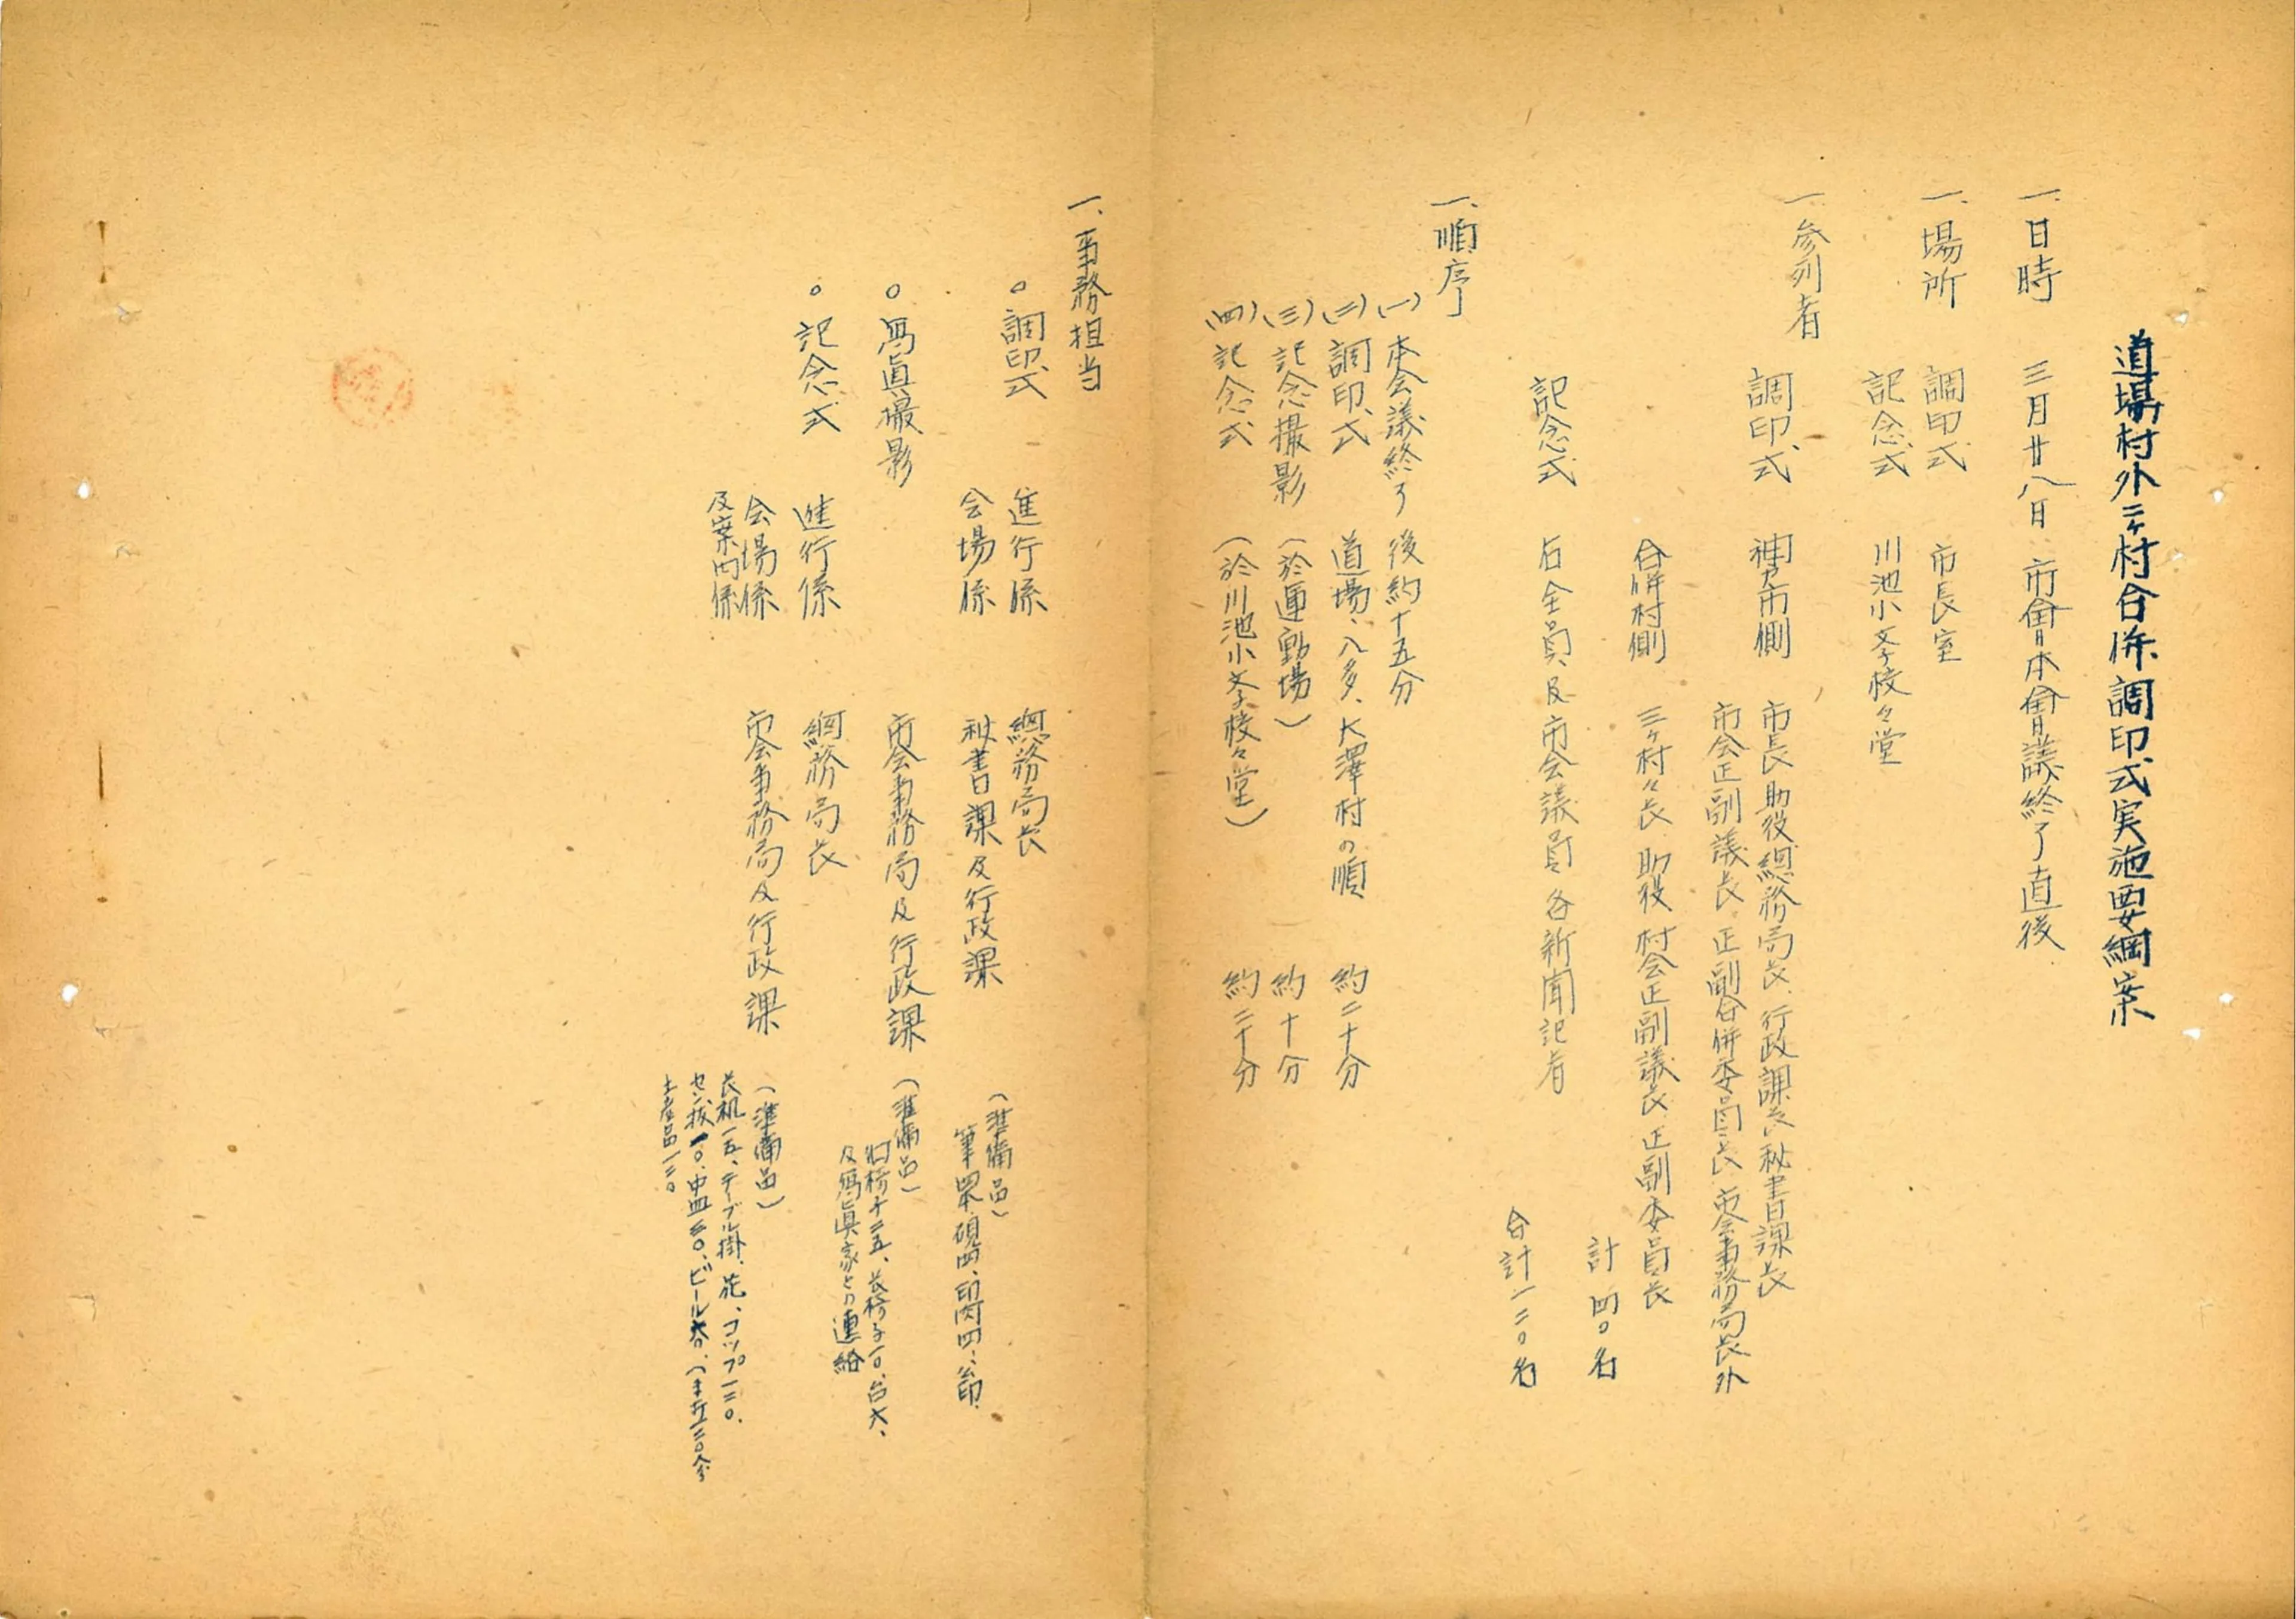 道場村外二ヶ村合併調印式実施要綱案
一、日時　三月廿八日　市會本會議終了直後
一、場所　調印式　市長室
記念式　川池小学校々堂
一、参列者
調印式　神戸市側　市長助役総務局長、行政課長、秘書課長
市会正副議長　正副合併委員長　市会事務局長外
合併村側　三ヶ村々長　助役　村会正副議長　正副委員長
計四〇名
記念式　右全員及市会議員　各新聞記者
合計一二〇名
一、順序
(一)　本会議終了後約十五分
(二)　調印式　道場、八多、大澤村の順　約二十分
(三)　記念撮影　（於運動場）　約十分
(四)　記念式　（於川池小学校々堂）　約二十分
一、事務担当
○調印式　進行係　總務局長
会場係　秘書課及行政課
（準備品）
筆四、硯四、印肉四、
○寫眞撮影　市会事務局及行政課
（準備品）
十二五、長椅子一〇、台大、
及寫眞家との連絡
○記念式　進行係　總務局長
会場係
及案内係　市会事務局及行政課
（準備品）
長机一五、テーブル掛、花、コップ一二〇、
セン抜一〇、中皿三〇、ビール
土産品一二〇